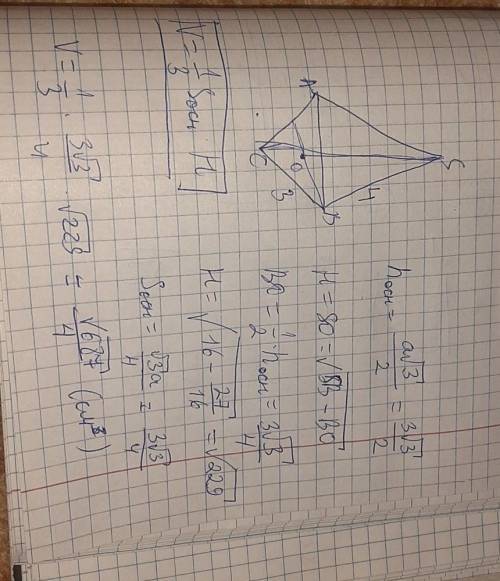 S
A
B
C
O
4
3
V = 1/3 Sосн · H
hосн = a√3/2 = 3√3/2
H = SO = √SB - BO
BO = 1/2 · hосн = 3√3/4
H = √16 - 27/16 = √229
Sосн = √3a/4 = 3√3/4
V = 1/3 · 3√3/4 · √229 = √687/4 (см³)